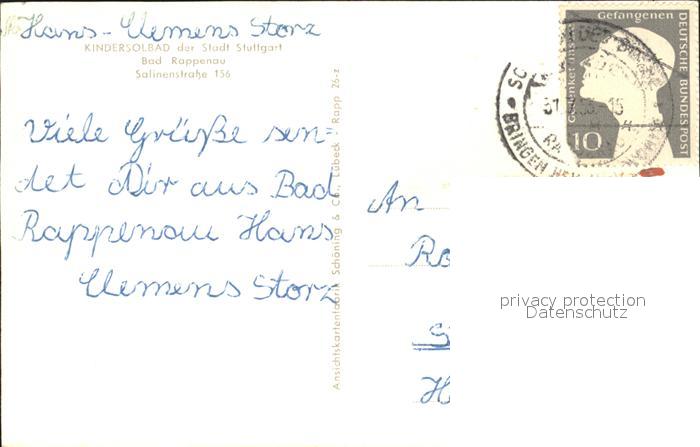 Hans-Clemens Storz
KINDERSOLBAD der Stadt Stuttgart
Bad Rappenau
Salinenstraße 156
Viele Grüße sen=
det Dir aus Bad
Rappenau Hans
Clemens Storz
Ansichtskartenfabrik Schöning & Co., Lübeck · Rapp 26-z
An
Ro
S
H
Gedenket uns Gefangenen
DEUTSCHE BUNDESPOST
10
BRINGEN
privacy protection
Datenschutz